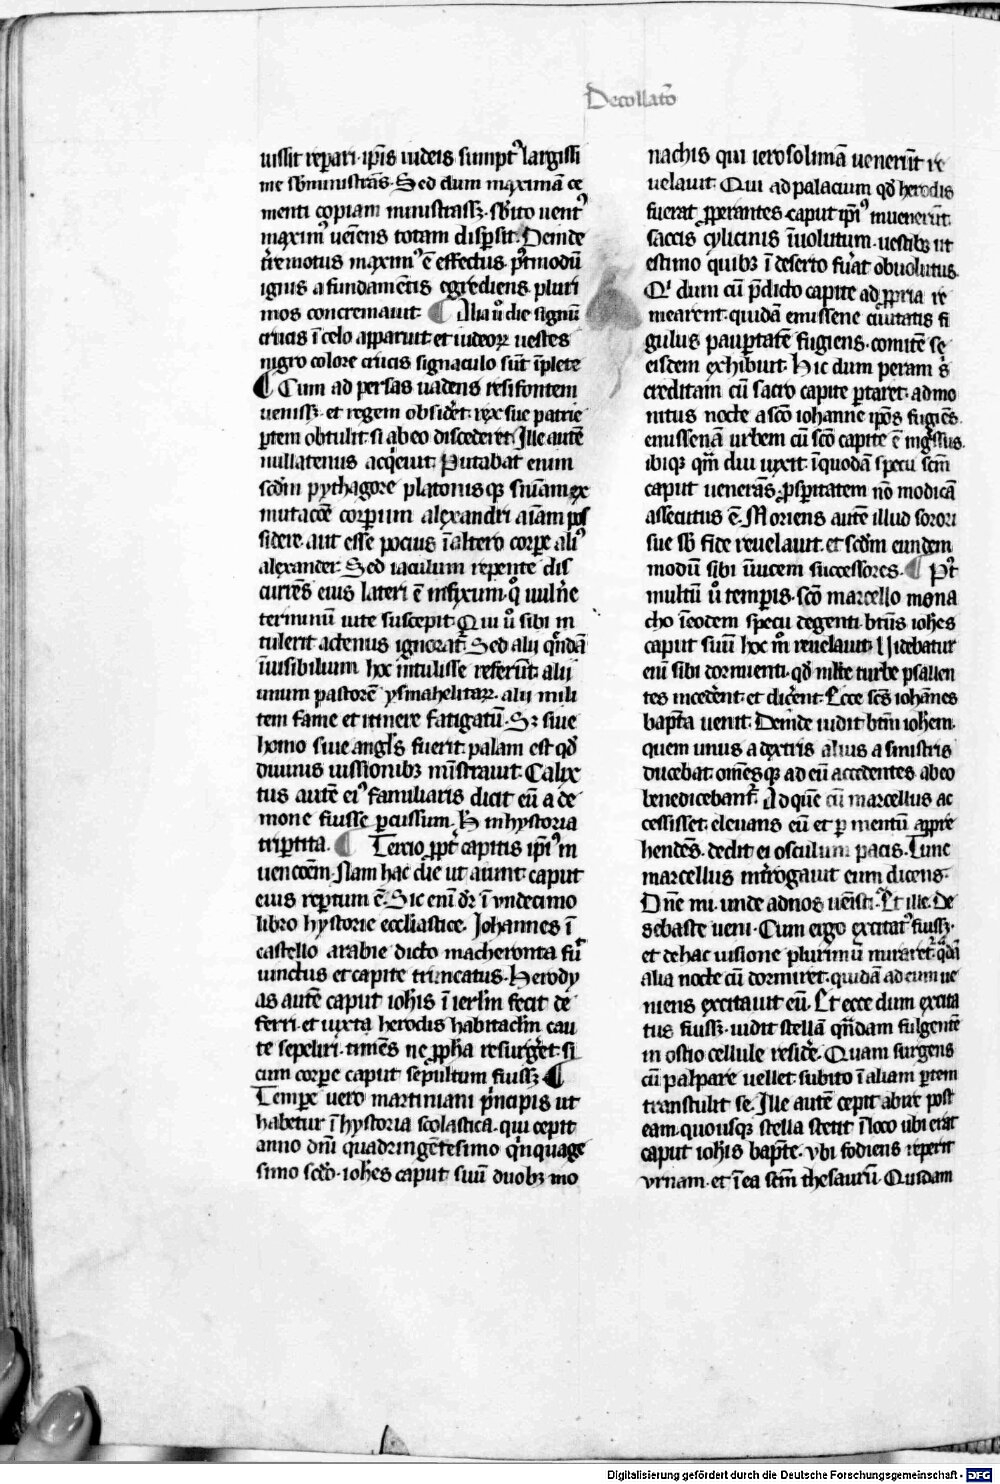 Decollatō
iussit repari · ip̄is iudeis sumptꝰ largissi
me sb̄ministrās · Sed dum maximā ce
menti copiam ministrassꝫ · sb̄ito uentꝰ
maximꝰ ueīens totam disꝑsit · Deinde
t̄re motus maximꝰ ē effectus · pꝰtmodū
ignis a fundamētis egrediens pluri
mos concremauit · ¶ Alia ū die signū
crucis ī celo apparuit · et iudeoꝝ uestes
nigro colore crucis signaculo sūt īplete
¶ Cum ad persas uadens tesifontem
uenissꝫ · et regem obsidēt · rex sue patrie
ꝑtem obtulit · si ab eo discederet · Ille autē
nullatenus acq̄euit · Putabat enim
scd̄m pythagore platonisqꝫ snīam ex
mutacōe corꝑum alexandri aīam pos
sidere · aut esse pocius ī altero corꝑe aliꝰ
alexander · Sed iaculum repente dis
currēs eius lateri ē infixum · qͦ uulne
terminū uite suscepit · Qui ū sibi in
tulerit actenus ignorat᷑ · Sed alii qn̄dā
īuisibilium hoc intulisse referūt · alij
unum pastorē ysmahelitaꝝ · alij mili
tem fame et itinere fatigatū · Sꝫ siue
homo siue angl̄s fuerit · palam est qd̄
diuinis uissionibꝫ mīstrauit · Calix
tus autē eiꝰ familiaris dicit eū a de
mone fuisse ꝑcussum · H̄ in hystoria
triꝑtita · ¶ Tercio ꝓpt̄ capitis ip̄iꝰ in
uencōem · Nam hac die ut aiunt caput
eius reꝑtum ē · Sic enī dr̄ ī vndecimo
libro hystorie eccliastice · Johannes ī
castello arabie dicto macheronta fu᷑
uinctus et capite truncatus · Herody
as autē caput ioh̄is ī ierl̄m fecit de
ferri · et iuxta herodis habitacl̄m cau
te sepeliri · timēs ne ꝓph̄a resurgēt · si
cum corꝑe caput sepultum fuissꝫ ¶
Temꝑe uero martiniani pͥncipis ut
habetur ī hystoria scolastica · qui cepit
anno dn̄i quadringētesimo qͥnquage
simo scd̄o · ioh̄es caput suū duobꝫ mo
nachis qui ierosolimā uenerūt re
uelauit · Qui ad palacium qd̄ herodis
fuerat ꝓꝑantes · caput ip̄iꝰ inuenerūt
saccis cylicinis īuolutum · uestibꝫ ut
estimo quibꝫ ī deserto fuāt obuolutus ·
Qͥ dum cū p̄dicto capite ad ꝓpria re
mearent · quidā emissene ciuitatis fi
gulus pauꝑtatē fugiens · comitē se
eisdem exhibuit · Hic dum peram s̄
creditam cū sacro capite ꝑtaret · admo
nitus nocte a scō iohanne ip̄os fugiēs
emissenā urbem cū scō capite ē ingressus ·
ibiqꝫ qm̄ diu uixit · ī quodā specu scm̄
caput uenerās ꝓsꝑitatem nō modicā
assecutus ē · Moriens autē illud sorori
sue sb̄ fide reuelauit · et scd̄m eundem
modū sibi īuicem successores · ¶ Pꝰt
multū ū temꝑis · scō marcello mona
cho ī eodem specu degenti · bt̄us ioh̄es
caput suū hoc mͦ reuelauit · Videbatur
enī sibi dormienti · qd̄ mlt̄e turbe psallen
tes incedent · et dicēnt · Ecce sc̄s iohānes
bapt̄a uenit · Deinde uidit bt̄m ioh̄em ·
quem unus a dextris alius a sinistris
ducebat · omēsqꝫ ad eū accedentes ab eo
benedicebant᷑ · Ad quē cū marcellus ac
cessisset · eleuans eū et ꝑ mentū appre
hendēs · dedit ei osculum pacis · Tunc
marcellus int̄rogauit eum dicens ·
Dn̄e mi · unde ad nos uenisti · Et ille · De
sebaste ueni · Cum ergo excitatꝰ fuissꝫ ·
et de hac uisione plurimū miraret᷑ · qͣdā
alia nocte cū dormiret · quidā ad eum ue
niens excitauit eū · Et ecce dum excita
tus fuissꝫ · uidit stellā qn̄dam fulgentē
in ostio cellule residē · Quam surgens
cū palpare uellet · subito ī aliam ꝑtem
transtulit se · Ille autē cepit abire post
eam · quousqꝫ stella stetit ī loco ubi erat
caput ioh̄is bapt̄e · vbi fodiens reperit
vrnam · et ī ea scm̄ thesaurū · Quidam
Digitalisierung gefördert durch die Deutsche Forschungsgemeinschaft · DFG